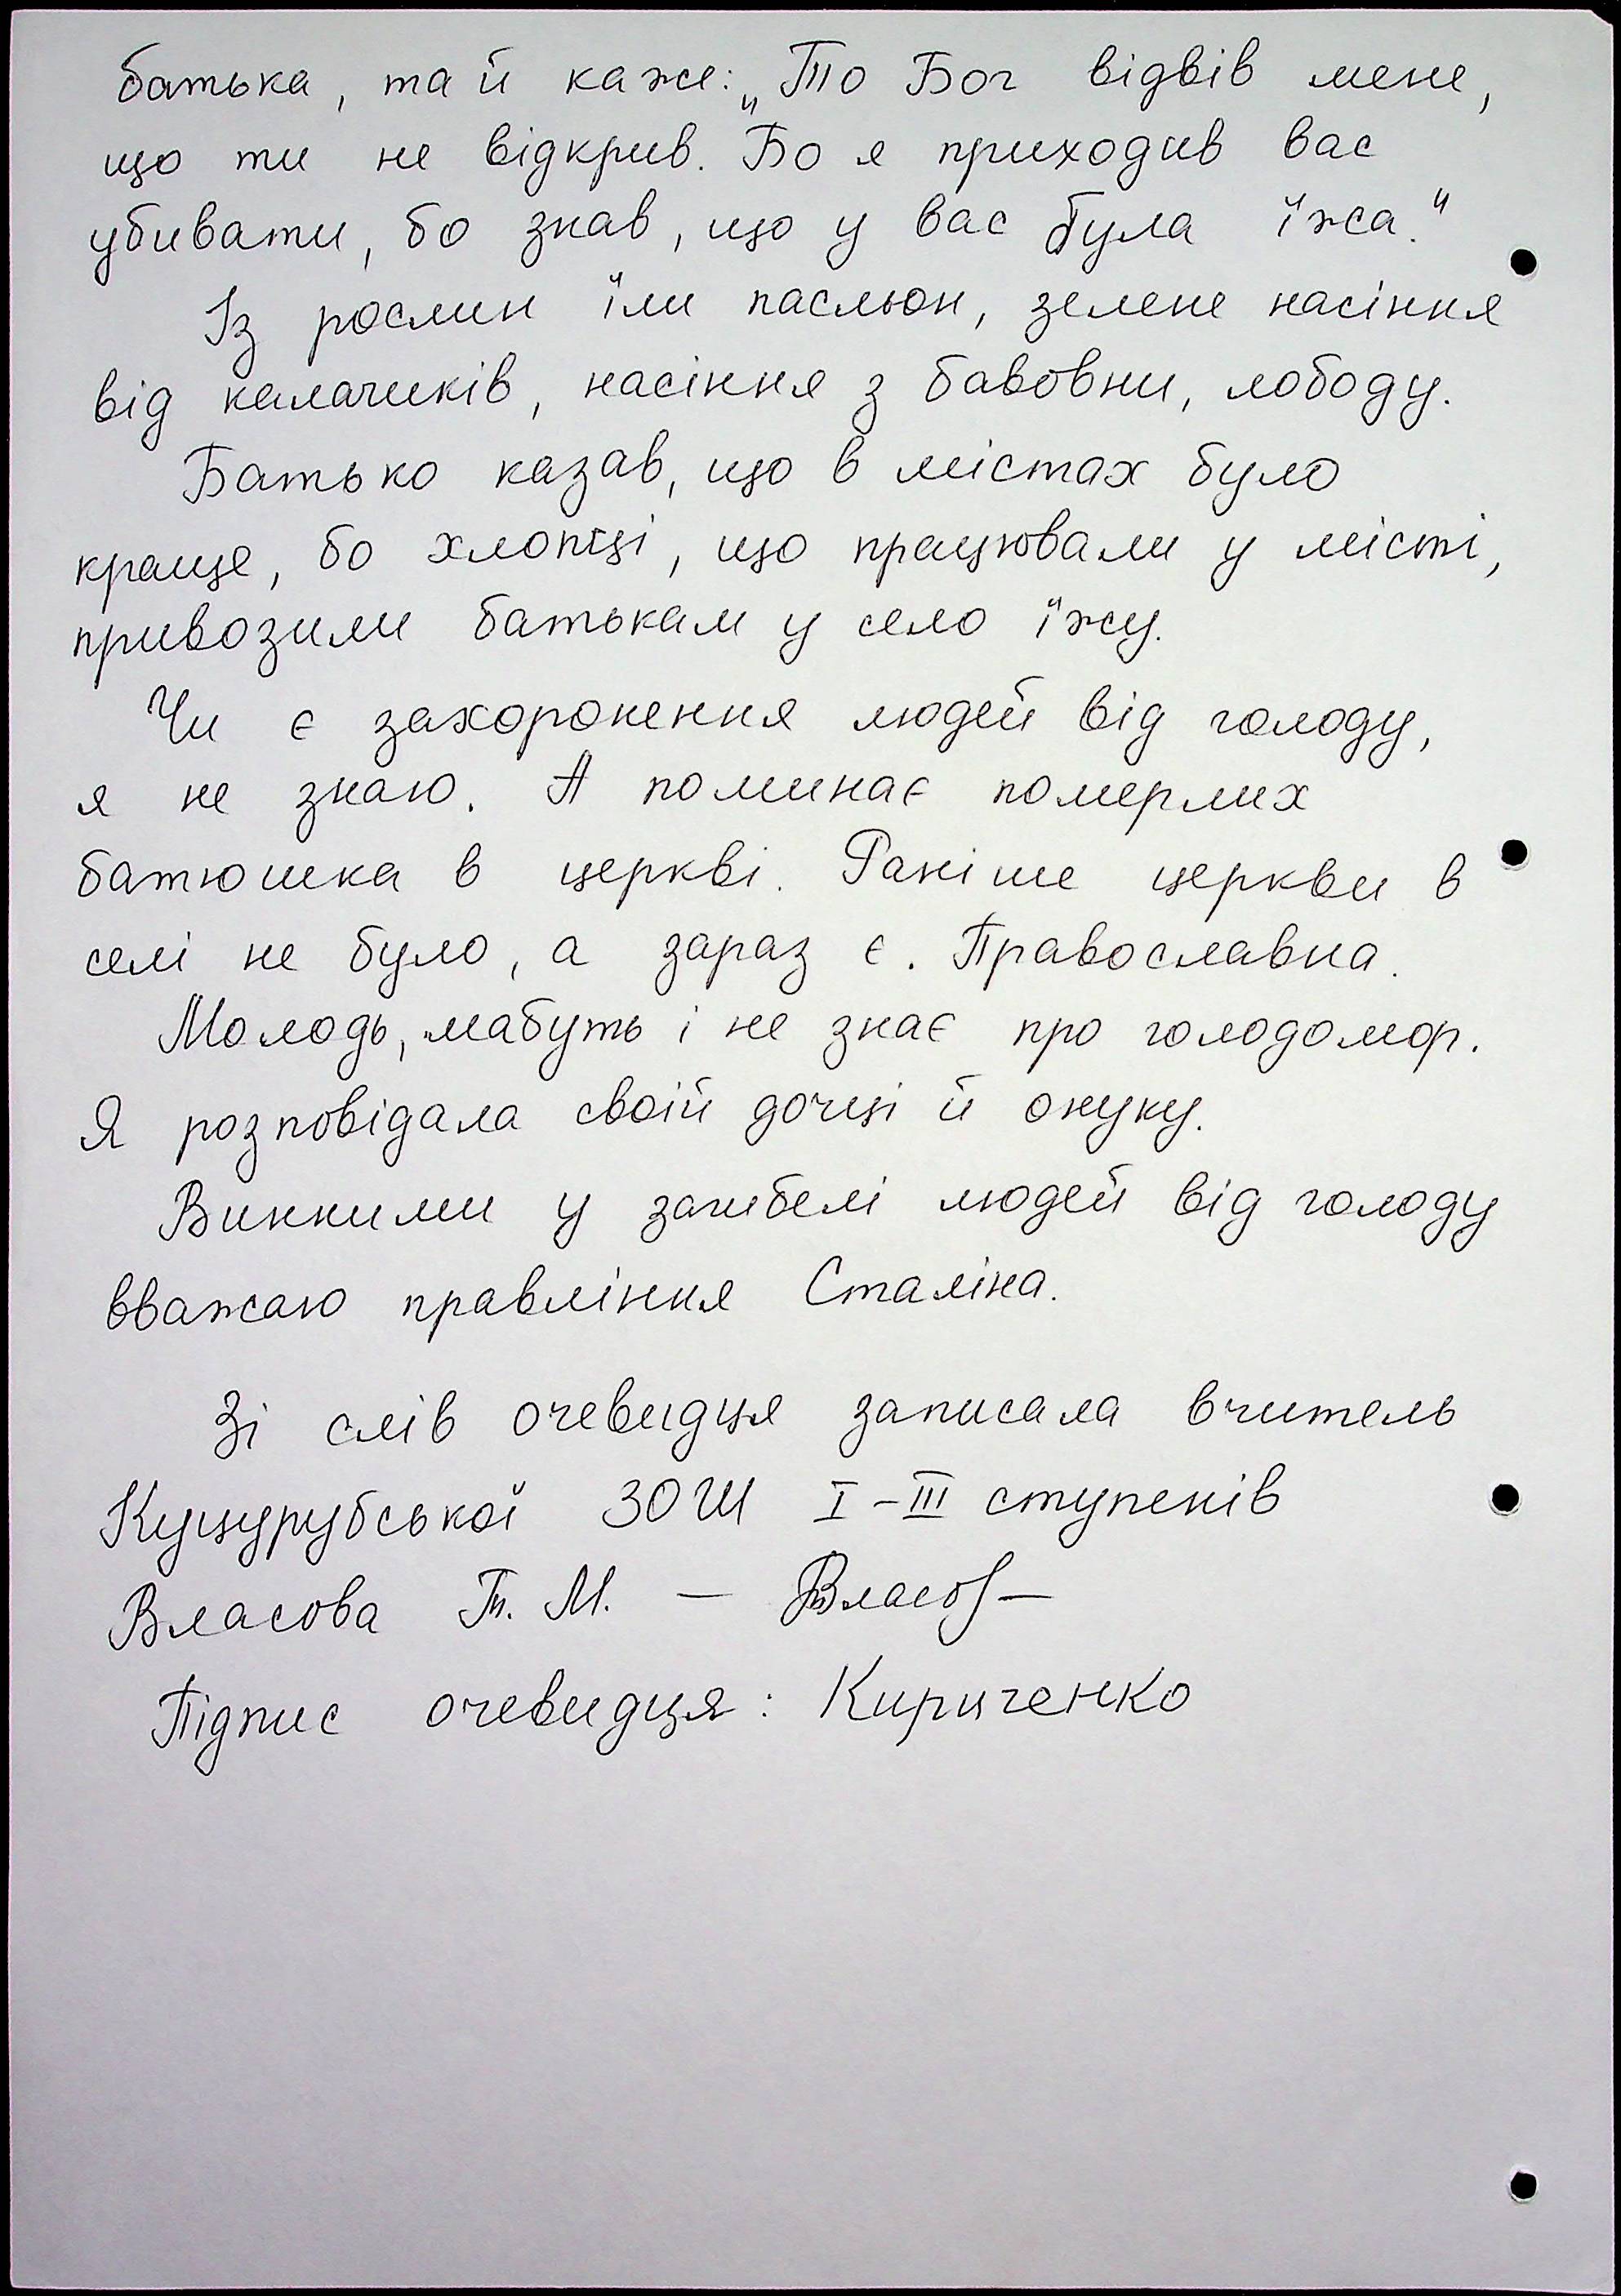 батька, та й каже: „То Бог відвів мене,
що ти не відкрив. Бо я приходив вас
убивати, бо знав, що у вас була їжа."
Із рослин їли пасльон, зелене насіння
від калачиків, насіння з бавовни, лободу.
Батько казав, що в містах було
краще, бо хлопці, що працювали у місті,
привозили батькам у село їжу.
Чи є захоронення людей від голоду,
я не знаю. А поминає померлих
батюшка в церкві. Раніше церкви в
селі не було, а зараз є. Православна.
Молодь, мабуть і не знає про голодомор.
Я розповідала своїй дочці й онуку.
Винними у загибелі людей від голоду
вважаю правління Сталіна.
Зі слів очевидця записала вчитель
Куцурубської ЗОШ I-III ступенів
Власова Т. М. — Власов—
Підпис очевидця: Кириченко